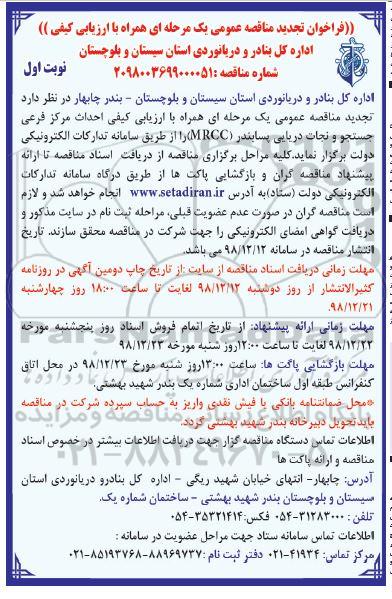 ((فراخوان تجدید مناقصه عمومی یک مرحله ای همراه با ارزیابی کیفی ))
اداره کل بنادر و دریانوردی استان سیستان و بلوچستان
شماره مناقصه :۲۰۹۸۰۰۳۶۹۹۰۰۰۰۵۱
نوبت اول
اداره کل بنادر و دریانوردی استان سیستان و بلوچستان - بندر چابهار در نظر دارد
تجدید مناقصه عمومی یک مرحله ای همراه با ارزیابی کیفی احداث مرکز فرعی
جستجو و نجات دریایی پسابندر (MRCC)را از طریق سامانه تدارکات الکترونیکی
دولت برگزار نماید.کلیه مراحل برگزاری مناقصه از دریافت اسناد مناقصه تا ارائه
پیشنهاد مناقصه گران و بازگشایی پاکت ها از طریق درگاه سامانه تدارکات
الکترونیکی دولت (ستاد)به آدرس www.setadiran.ir انجام خواهد شد و لازم
است مناقصه گران در صورت عدم عضویت قبلی، مراحله ثبت نام در سایت مذکور و
دریافت گواهی امضای الکترونیکی را جهت شرکت در مناقصه محقق سازند. تاریخ
انتشار مناقصه در سامانه ۹۸/۱۲/۱۲ می باشد.
مهلت زمانی دریافت اسناد مناقصه از سایت :از تاریخ چاپ دومین آگهی در روزنامه
کثیرالانتشار از روز دوشنبه ۹۸/۱۲/۱۲ لغایت تا ساعت ۱۸:۰۰ روز چهارشنبه
۹۸/۱۲/۲۱.
مهلت زمانی ارائه پیشنهاد: از تاریخ اتمام فروش اسناد روز پنجشنبه مورخه
۹۸/۱۲/۲۲ لغایت تا ساعت ۱۲:۰۰روز شنبه مورخه ۹۸/۱۲/۲۳
مهلت بازگشایی پاکت ها: ساعت ۱۳:۰۰روز شنبه مورخ ۹۸/۱۲/۲۳ در محل اتاق
کنفرانس طبقه اول ساختمان اداری شماره یک بندر شهید بهشتی.
*محل ضمانتنامه بانکی یا فیش نقدی واریز به حساب سپرده شرکت در مناقصه
بایدتحویل دبیرخانه بندر شهید بهشتی گردد.
اطلاعات تماس دستگاه مناقصه گزار جهت دریافت اطلاعات بیشتر در خصوص اسناد
مناقصه و ارائه پاکت ها
آدرس: چابهار- انتهای خیابان شهید ریگی - اداره کل بنادرو دریانوردی استان
سیستان و بلوچستان بندر شهید بهشتی - ساختمان شماره یک.
تلفن : ۳۱۲۸۳۰۰۰-۰۵۴ فکس:۳۵۳۲۱۴۱۴-۰۵۴
اطلاعات تماس سامانه ستاد جهت مراحل عضویت در سامانه :
مرکز تماس: ۴۱۹۳۴-۰۲۱ دفتر ثبت نام :۸۸۹۶۹۷۳۷-۸۵۱۹۳۷۶۸-۰۲۱